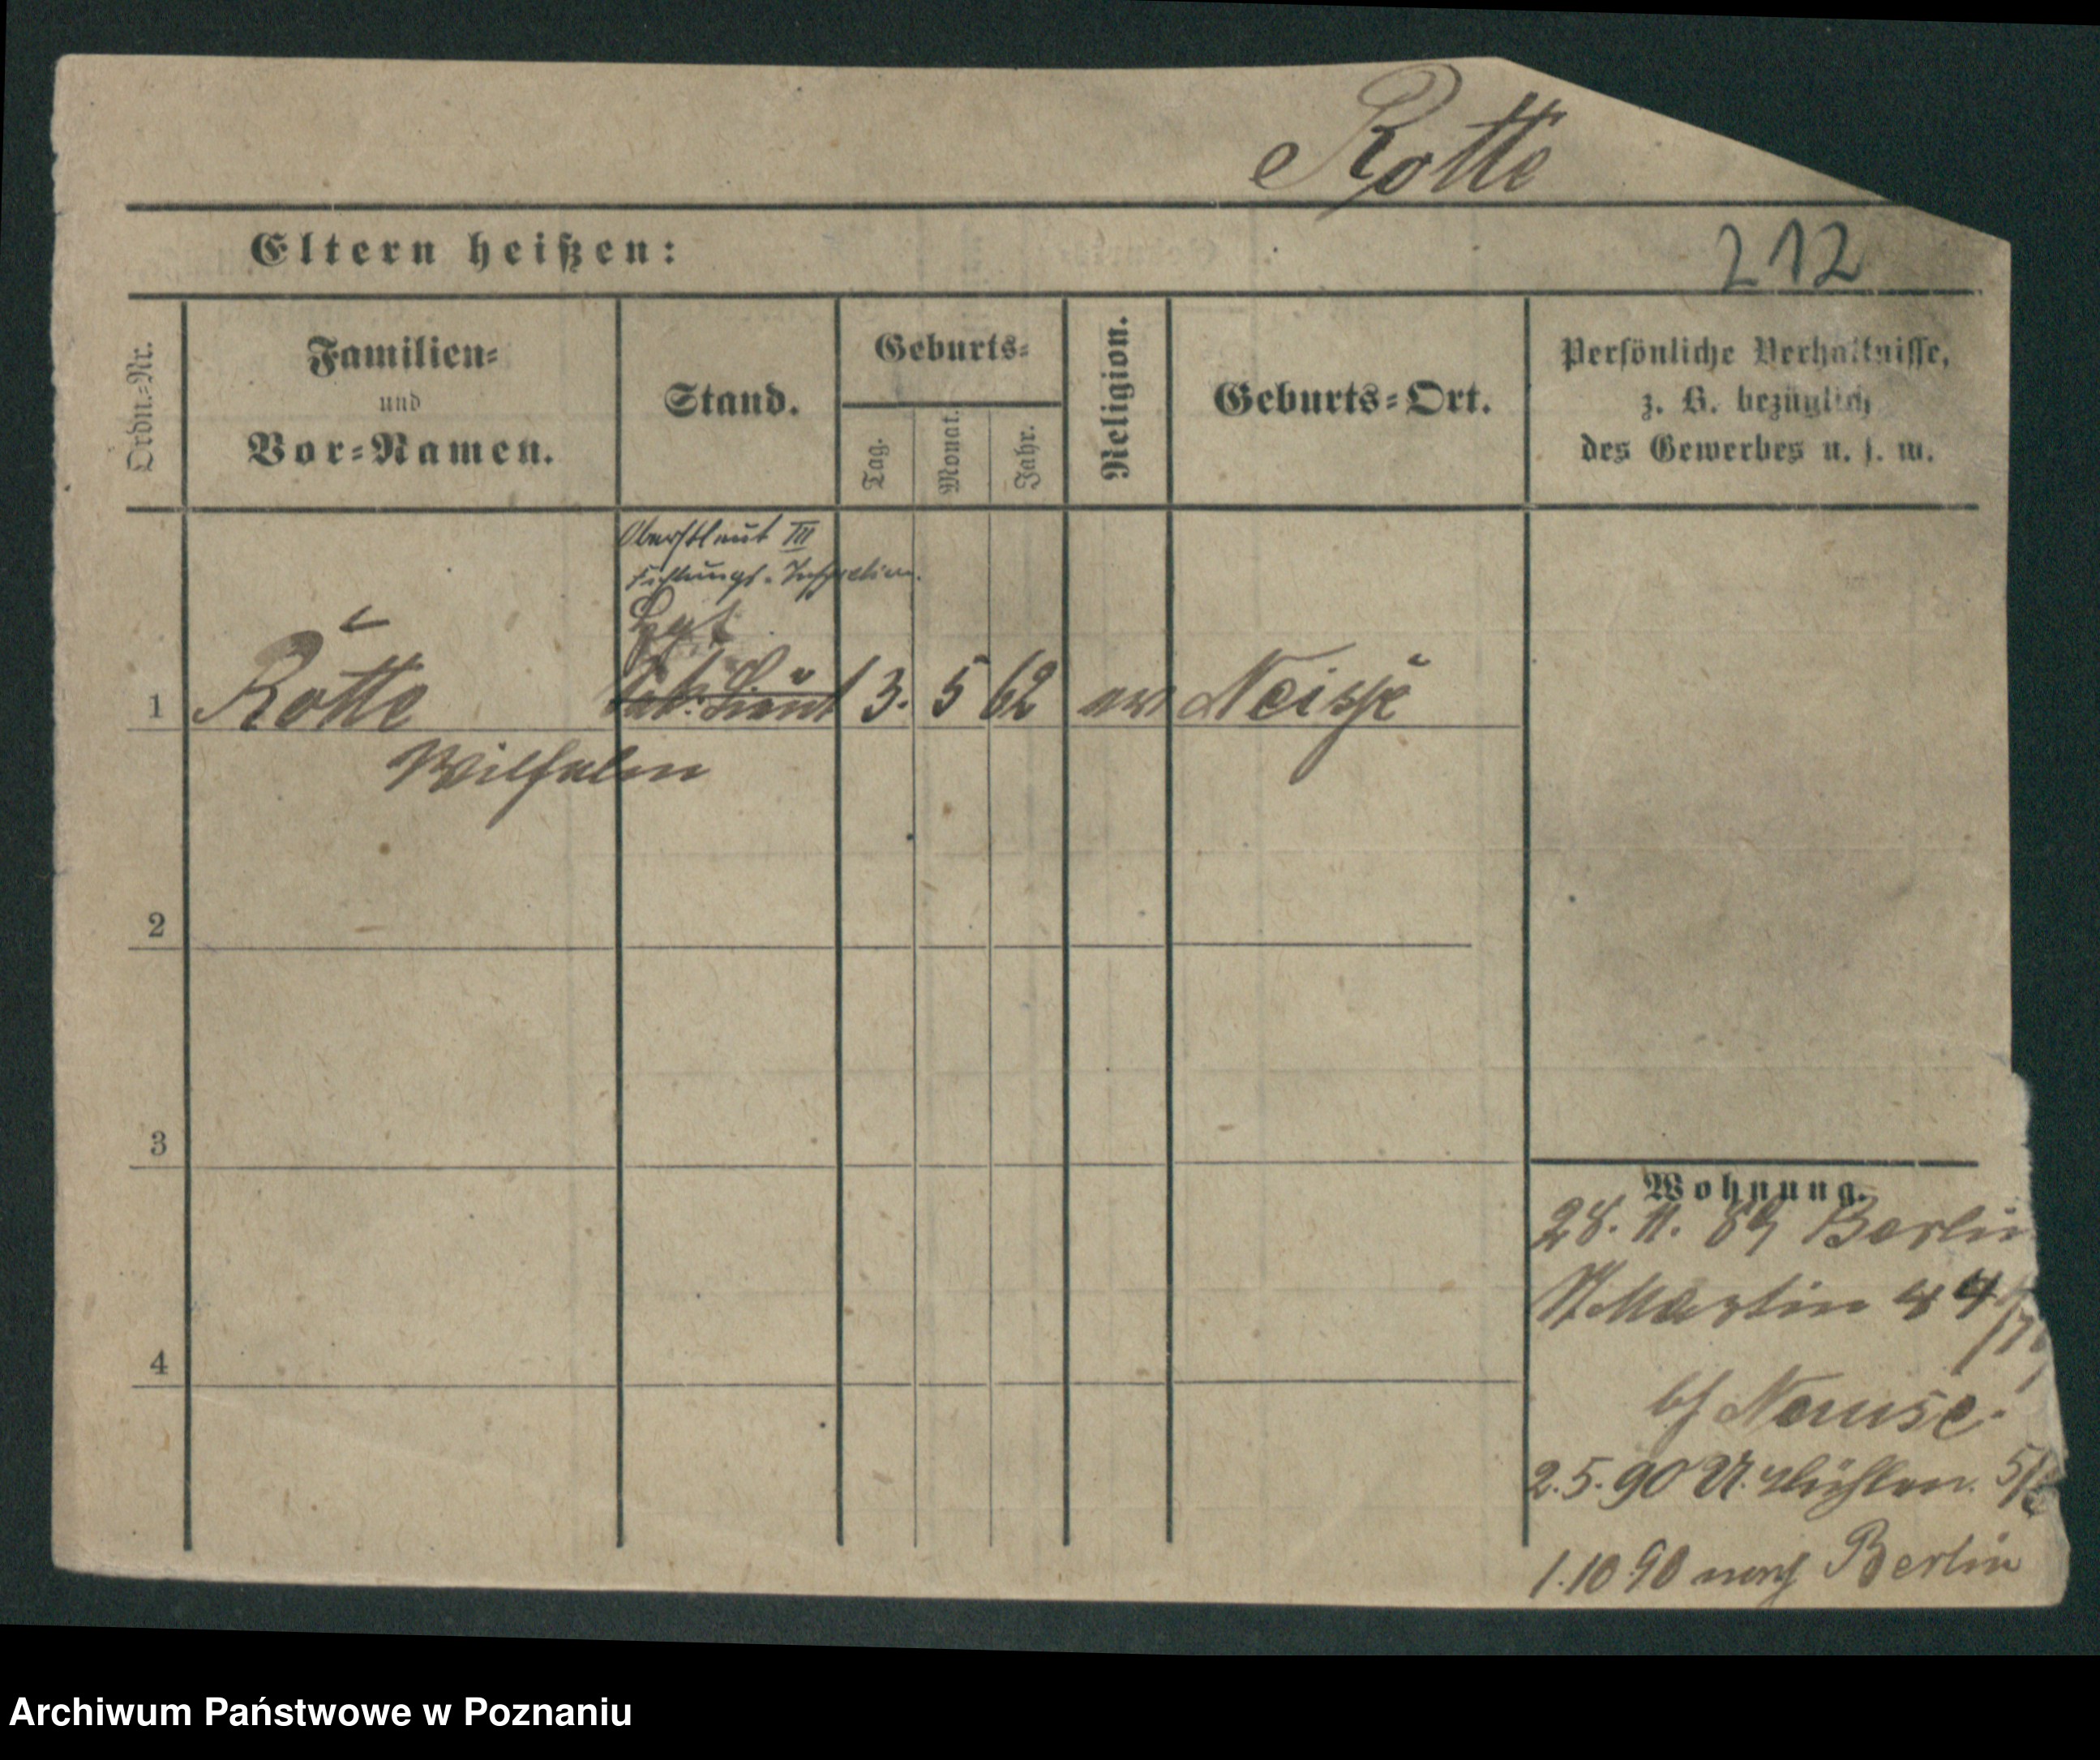 Rotte
Eltern heißen:
212
Ordn.=Nr.
Familien=
und
Vor=Namen.
Stand.
Geburts=
Tag.
Monat.
Jahr.
Religion.
Geburts=Ort.
Persönliche Verhältnisse,
z. B. bezüglich
des Gewerbes u. s. w.
Oberstleut III
Festungs-Inspection.
1
Rotte
Sek. Lieut
3.
5
62
ev
Neisse
Wilhelm
2
3
4
Wohnung.
28. 11. 89 Berlin
St Martin 44
bei
2.5.90 U. Mühlen. 5/6
1.10 90 nach Berlin
Archiwum Państwowe w Poznaniu